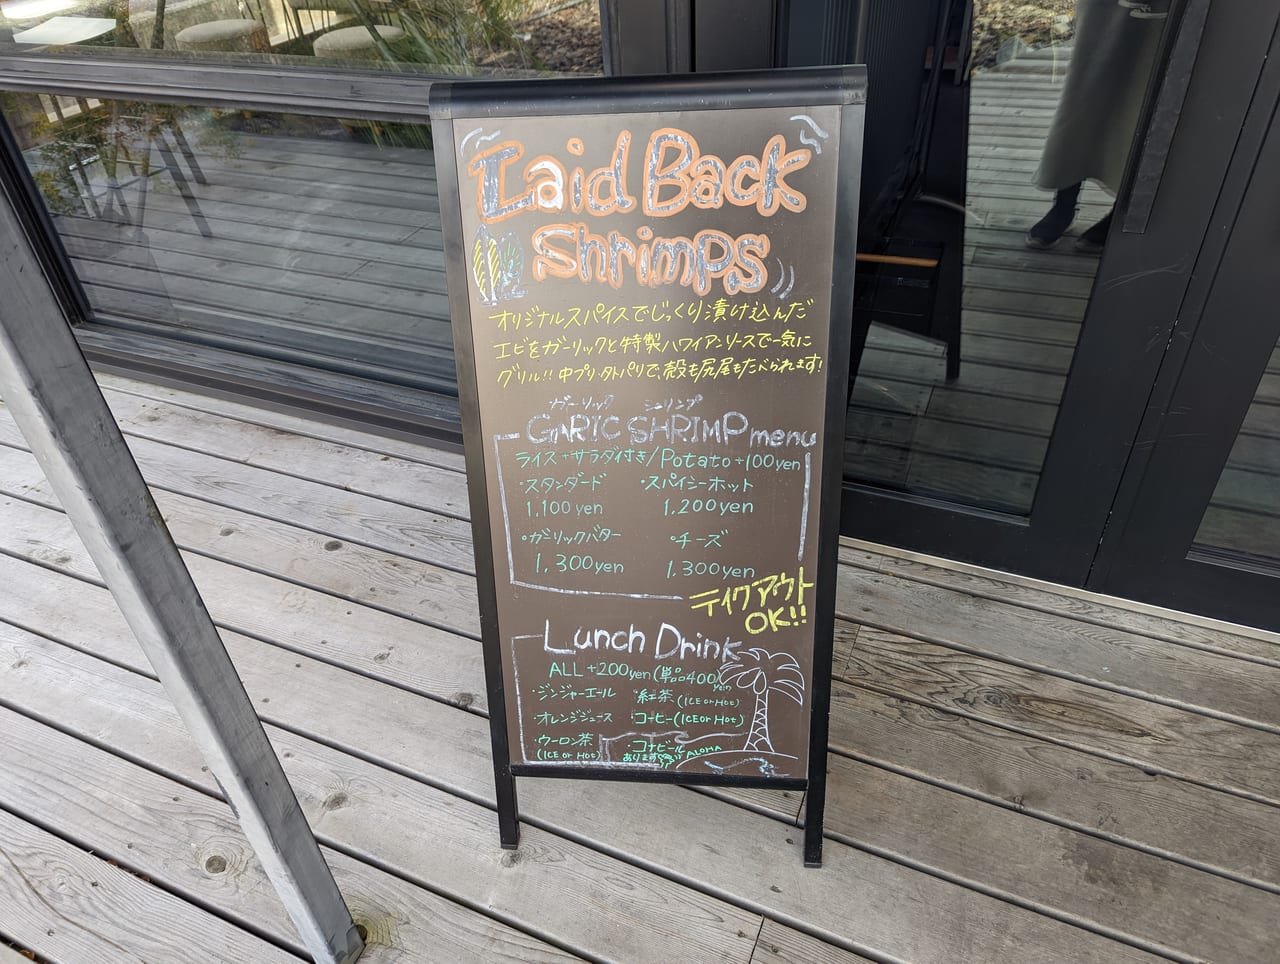 Laid Back
Shrimps
オリジナルスパイスでじっくり漬け込んだ
エビをガーリックと特製ハワイアンソースで一気に
グリル!! 中プリ、外パリで、殻も尻尾もたべられます!
ガーリック シュリンプ
GARIC SHRIMP menu
ライス+サラダ付き/Potato+100yen
・スタンダード ・スパイシーホット
1,100yen 1,200yen
・ガーリックバター ・チーズ
1,300yen 1,300yen
テイクアウト
OK!!
Lunch Drink
ALL +200yen (単品400yen
・ジンジャーエール ・紅茶(ICE or Hot)
・オレンジジュース ・コーヒー(ICE or Hot)
・ウーロン茶 ・コナビール
(ICE or Hot) あります ALOHA